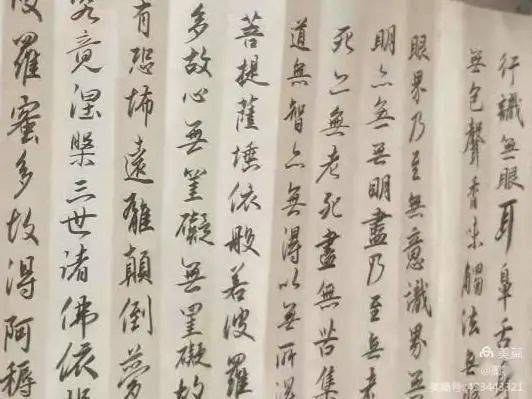 行識無眼耳鼻舌
無色聲香味觸法無
眼界乃至無意識界無
明亦無無明盡乃至無老
死亦無老死盡無苦集
道無智亦無得以無所得
菩提薩埵依般若波羅
多故心無罣礙無罣礙故
有恐怖遠離顛倒夢
究竟涅槃三世諸佛依
羅蜜多故得阿耨
美篇
美篇号:423443321